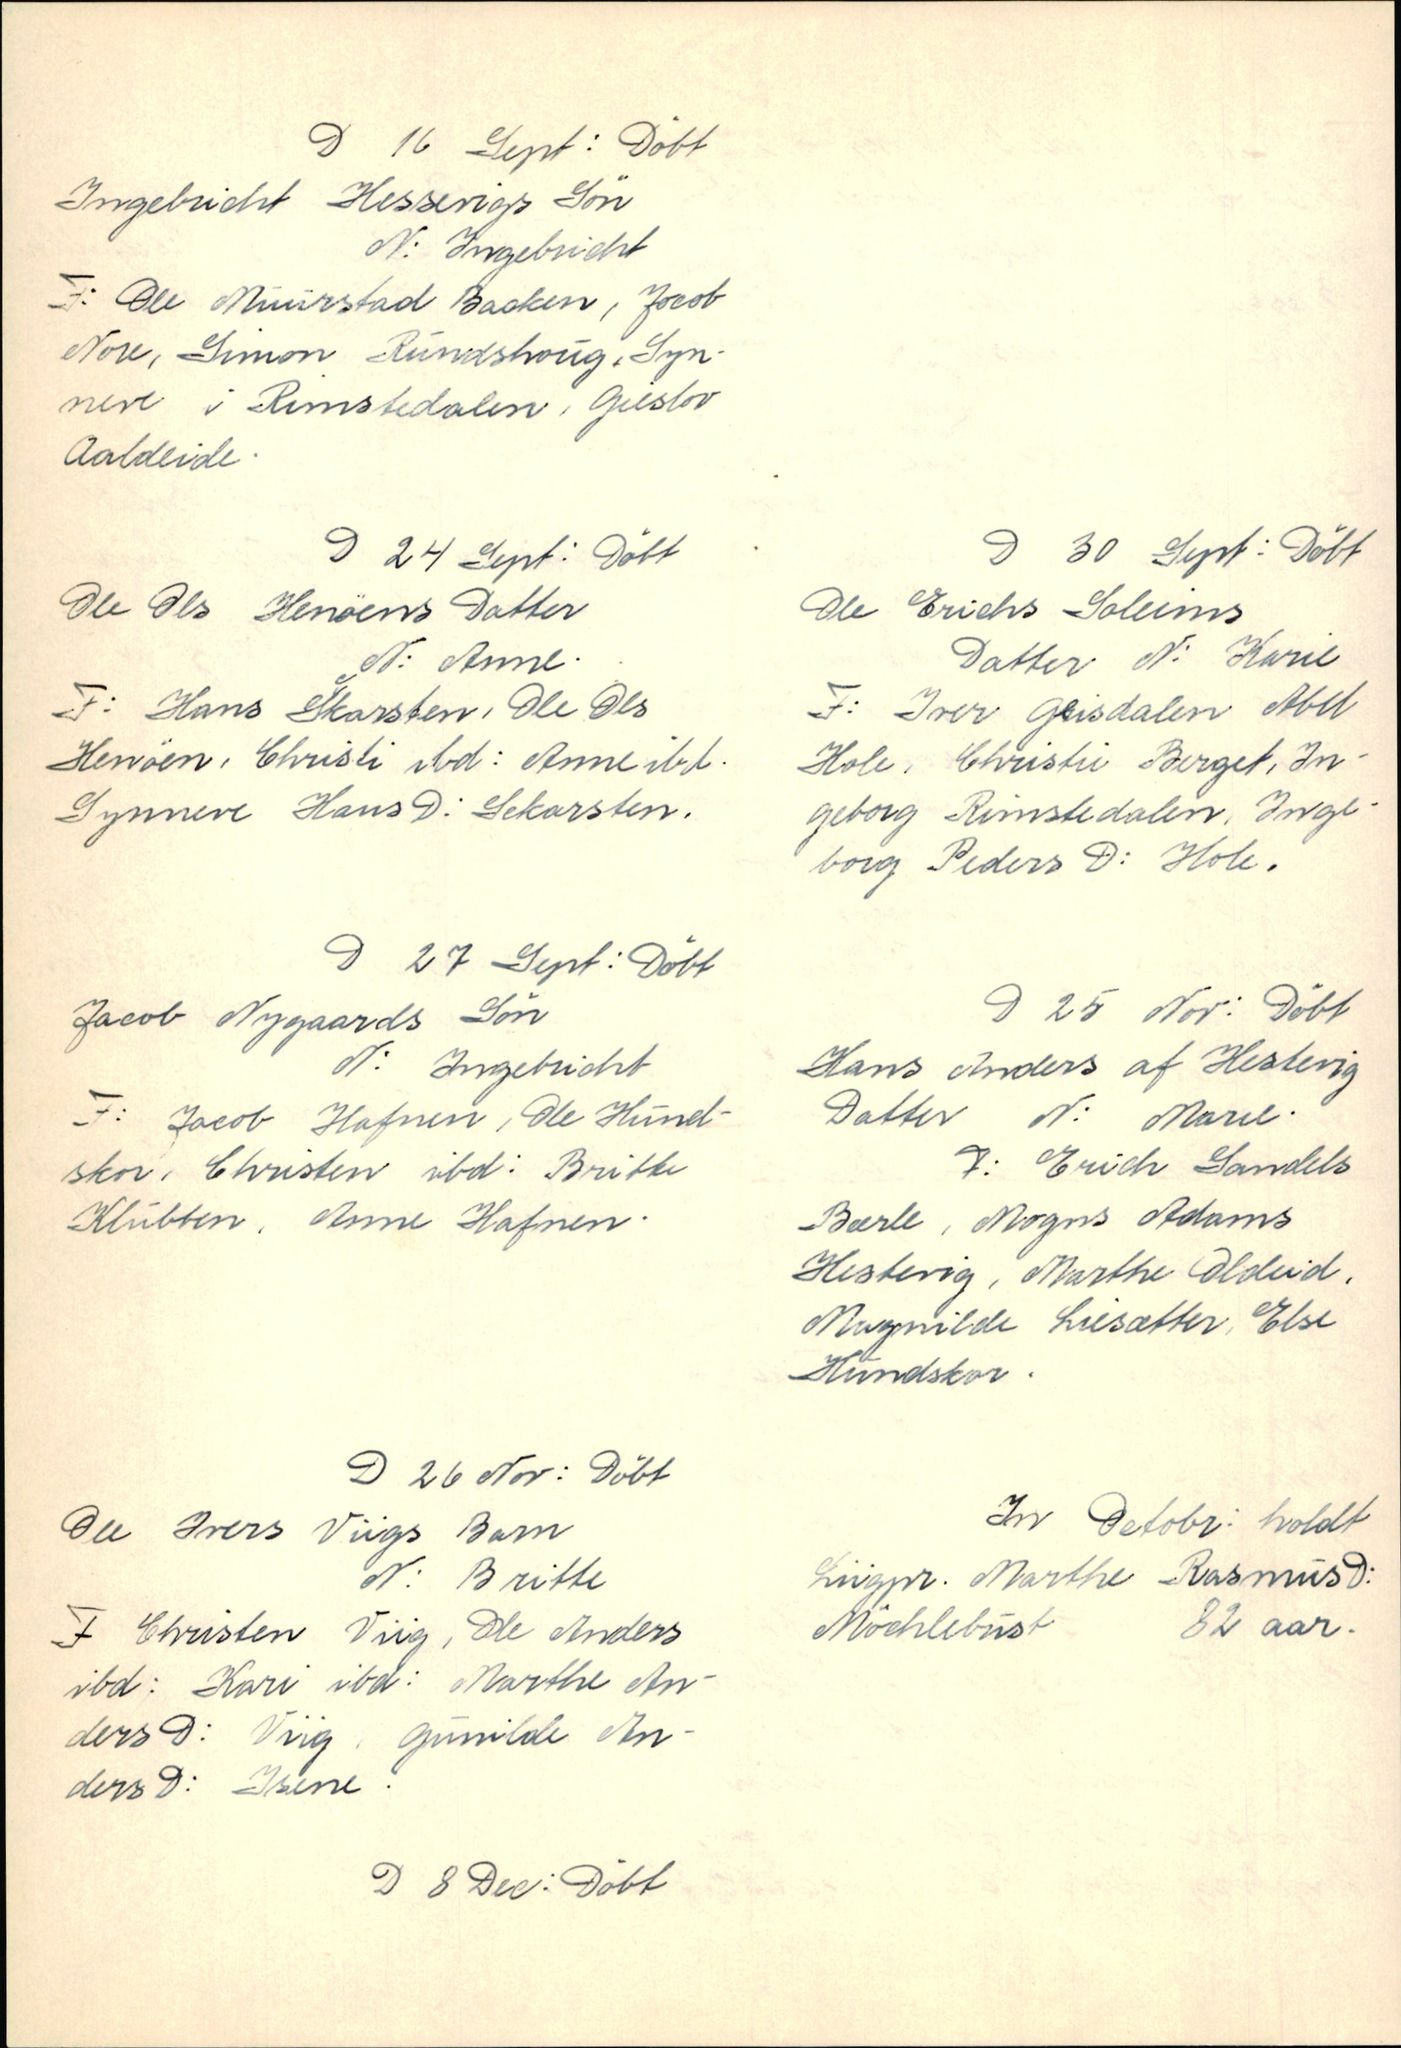 D 16 Sept: Döbt
Ingebricht Hesserigs Sön
N: Ingebricht
F: Ole Muurstad Backen, Jacob
Nore, Simon Rundshoug, Syn-
neve i Rimstedalen, Gieslov
Aaldeide.
D 24 Sept: Döbt
Ole Ols Henöens Datter
N: Anne.
F: Hans Skarsten, Ole Ols
Henöen, Christi ibd: Anne ibd.
Synneve Hans D: Sckarsten.
D 27 Sept: Döbt
Jacob Nygaards Sön
N: Ingebricht
F: Jacob Hafnen, Ole Hund-
skor, Christen ibd: Britte
Klubben, Anne Hafnen.
D 26 Nov: Döbt
Ole Ivers Viigs Barn
N: Britte
F Christen Viig, Ole Anders
ibd: Kari ibd: Marthe An-
ders D: Viig, Gunilde An-
ders D: Isene.
D 8 Dec: Döbt
D 30 Sept: Döbt
Ole Erichs Soleims
Datter N: Karie
F: Iver Geisdalen Abel
Hole, Christie Berget, In-
geborg Rimstedalen, Inge-
borg Peders D: Hole.
D 25 Nov: Döbt
Hans Anders af Hestevig
Datter N: Marie.
F: Erich Sandels
Bærle, Mogns Adams
Hestevig, Marthe Oldeid,
Magnilde Liesætter, Else
Hundskor.
In Octobr: holdt
Liigpr. Marthe Rasmus D:
Möchlebust 82 aar.